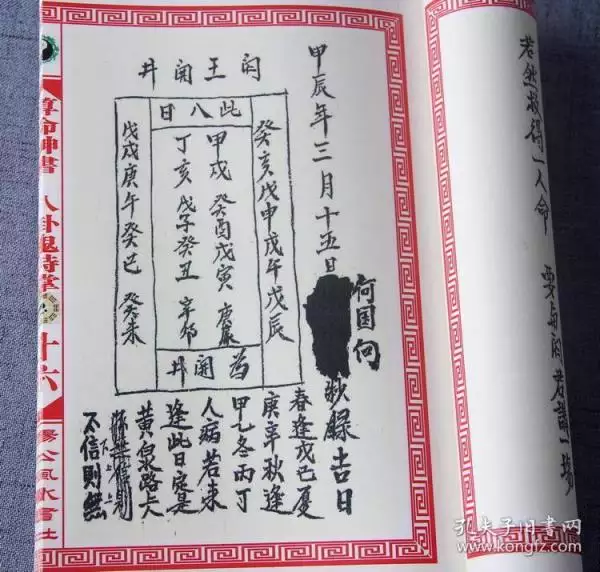 若然救得一人命
甲辰年三月十五日
何国向
吉日
闫王開井
此八日
癸亥戊申戊午戊辰
甲戌癸酉戊寅庚辰
丁亥戊子癸丑辛卯
戊戌庚午癸巳癸未
為開井
春逢戊己夏
庚辛秋逢
甲乙冬丙丁
人病若来
逢此日定是
黄泉路上
不信則無
算命神書
八卦鬼
十六
楊公風水書社
孔夫子旧书网
www.kongfz.com